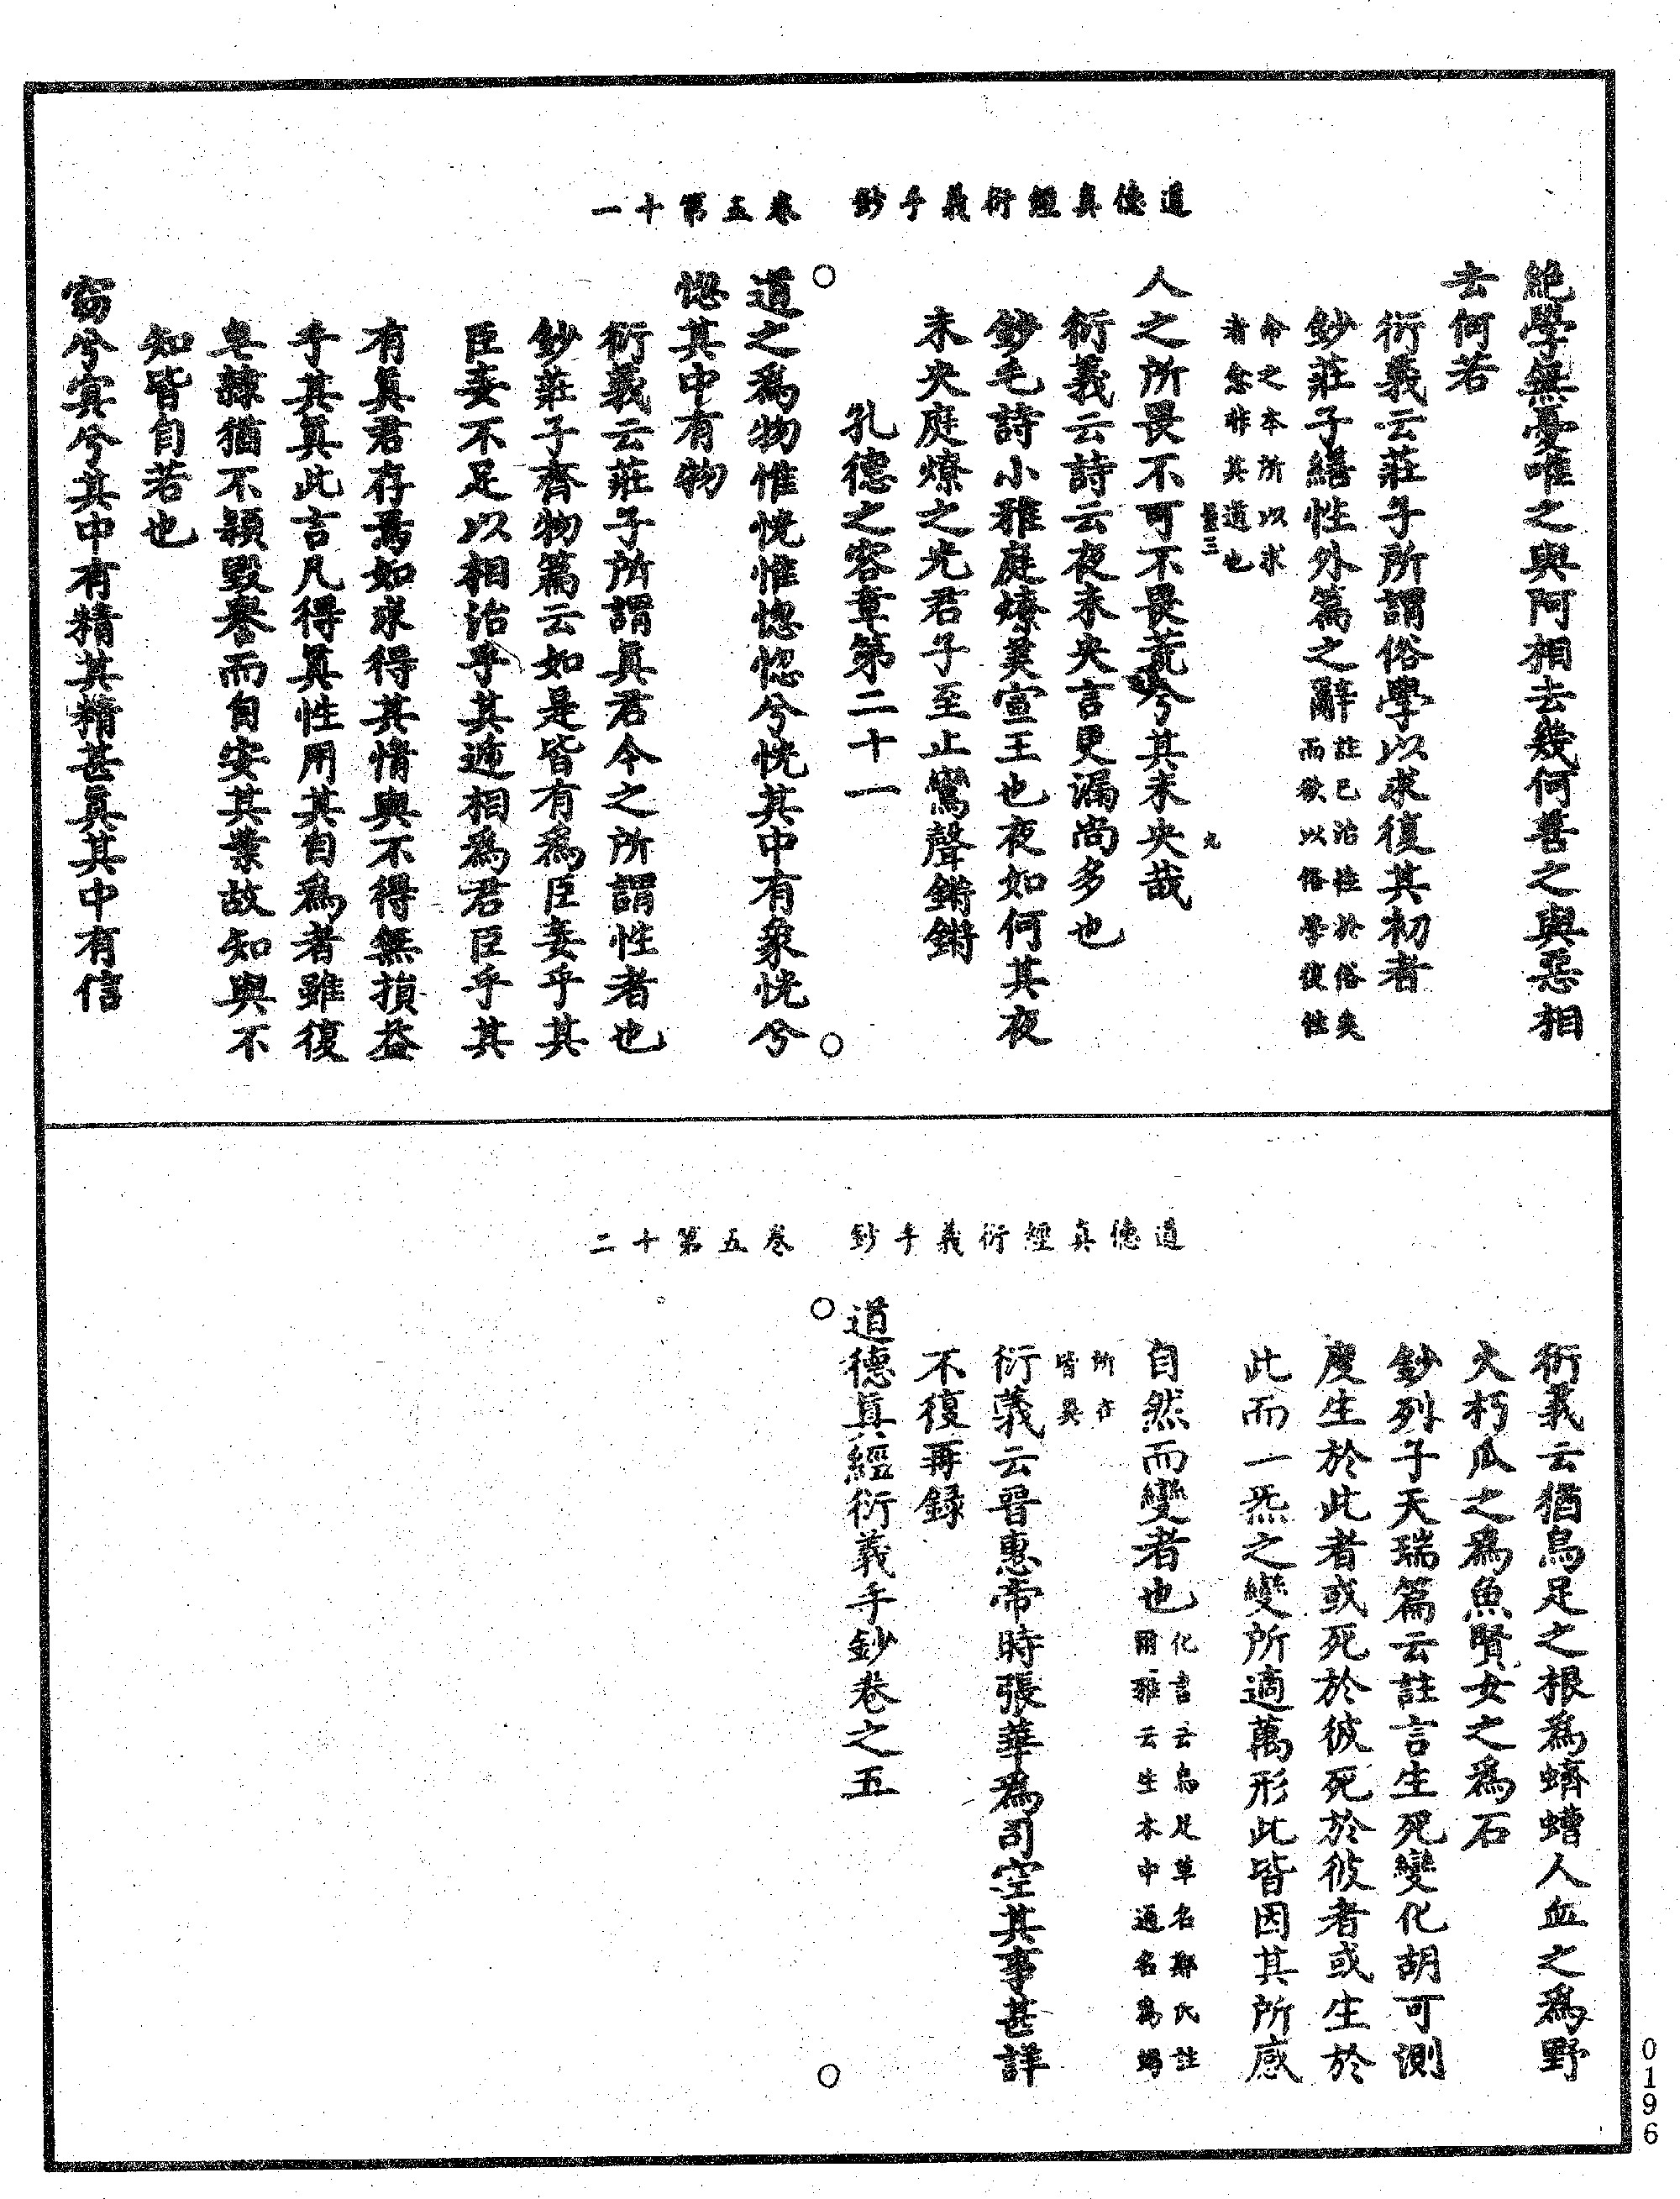 道德真經衍義手鈔　卷五第十一
絕學無憂唯之與阿相去幾何善之與惡相
去何若
衍義云莊子所謂俗學以求復其初者
鈔莊子繕性外篇之辭註已治性於俗矣而欲以俗學復性
命之本所以求者愈非其道也
人之所畏不可不畏荒兮其未央哉
衍義云詩云夜未央言更漏尚多也
鈔毛詩小雅庭燎美宣王也夜如何其夜
未央庭燎之光君子至止鸞聲鏘鏘
孔德之容章第二十一
道之爲物惟恍惟惚惚兮恍其中有象恍兮
惚其中有物
衍義云莊子所謂眞君今之所謂性者也
鈔莊子齊物篇云如是皆有爲臣妾乎其
臣妾不足以相治乎其遞相爲君臣乎其
有眞君存焉如求得其情與不得無損益
乎其眞此言凡得眞性用其自爲者雖復
皁隸猶不顧毀譽而自安其業故知與不
知皆自若也
窈兮冥兮其中有精其精甚眞其中有信
道德真經衍義手鈔　卷五第十二
衍義云猶烏足之根為蠐螬人血之爲野
火朽瓜之爲魚賢女之爲石
鈔列子天瑞篇云註言生死變化胡可測
度生於此者或死於彼死於彼者或生於
此而一炁之變所適萬形此皆因其所感
自然而變者也化書云烏足草名鄭氏註爾雅云生木中通名爲蝎
所在皆異
衍義云晉惠帝時張華爲司空其事甚詳
不復再録
道德眞經衍義手鈔卷之五
0196